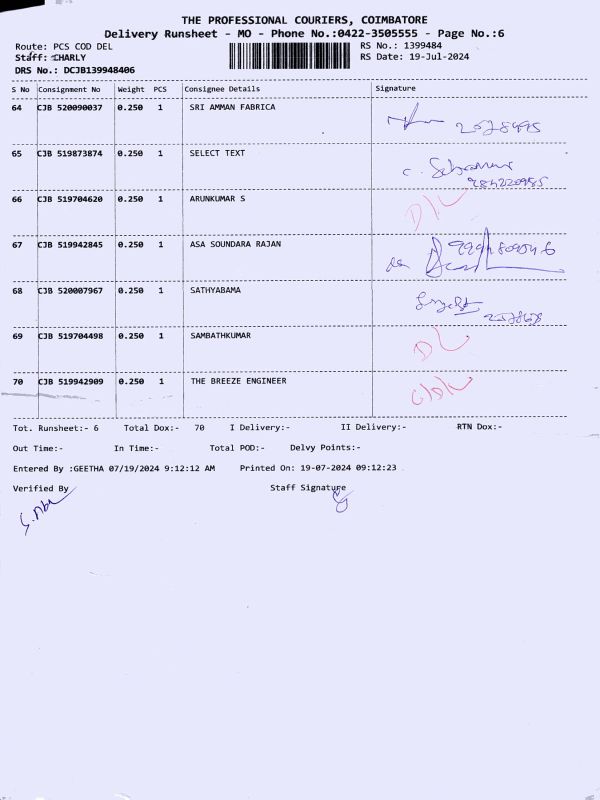 THE PROFESSIONAL COURIERS, COIMBATORE
Delivery Runsheet - MO - Phone No.:0422-3505555 - Page No.:6
Route: PCS COD DEL RS No.: 1399484
Staff: CHARLY RS Date: 19-Jul-2024
DRS No.: DCJB139948406
S No Consignment No Weight PCS Consignee Details Signature
64 CJB 520090037 0.250 1 SRI AMMAN FABRICA
65 CJB 519873874 0.250 1 SELECT TEXT
66 CJB 519704620 0.250 1 ARUNKUMAR S D/L
67 CJB 519942845 0.250 1 ASA SOUNDARA RAJAN
68 CJB 520007967 0.250 1 SATHYABAMA
69 CJB 519704498 0.250 1 SAMBATHKUMAR
70 CJB 519942909 0.250 1 THE BREEZE ENGINEER
Tot. Runsheet:- 6 Total Dox:- 70 I Delivery:- II Delivery:- RTN Dox:-
Out Time:- In Time:- Total POD:- Delvy Points:-
Entered By :GEETHA 07/19/2024 9:12:12 AM Printed On: 19-07-2024 09:12:23
Verified By Staff Signature